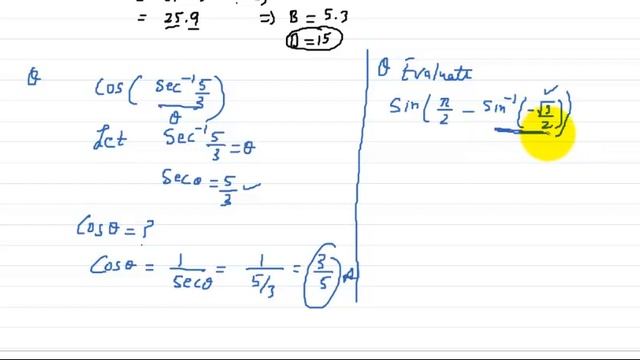 = 25.9 ⇒ B = 5.3
D = 15
Q
Cos( Sec⁻¹ 5/3 )
θ
Let Sec⁻¹ 5/3 = θ
Secθ = 5/3 ✓
Cosθ = ?
Cosθ = 1/Secθ = 1/5/3 = 3/5
Q Evaluate
Sin( π/2 − Sin⁻¹(−√3/2) )